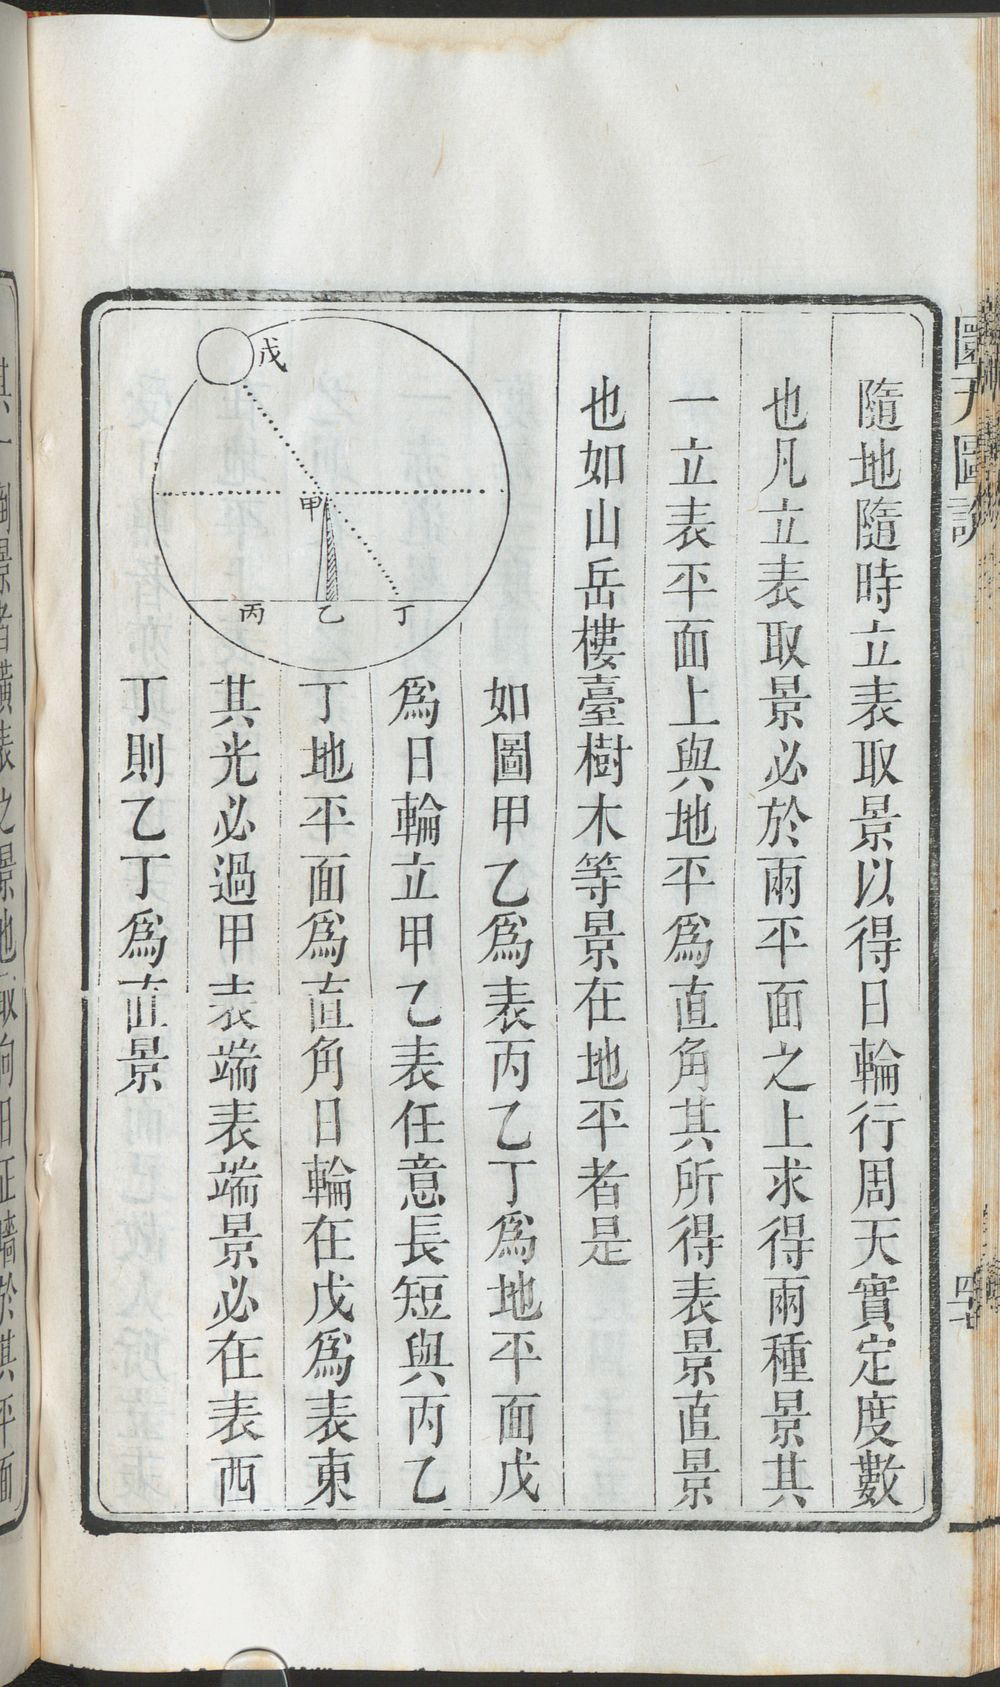 圜天圖說
隨地隨時立表取景以得日輪行周天實定度數
也凡立表取景必於兩平面之上求得兩種景其
一立表平面上與地平為直角其所得表景直景
也如山岳樓臺樹木等景在地平者是
如圖甲乙為表丙乙丁為地平面戊
為日輪立甲乙表任意長短與丙乙
丁地平面為直角日輪在戊為表東
其光必過甲表端表端景必在表西
丁則乙丁為直景
戊
甲
丙
乙
丁